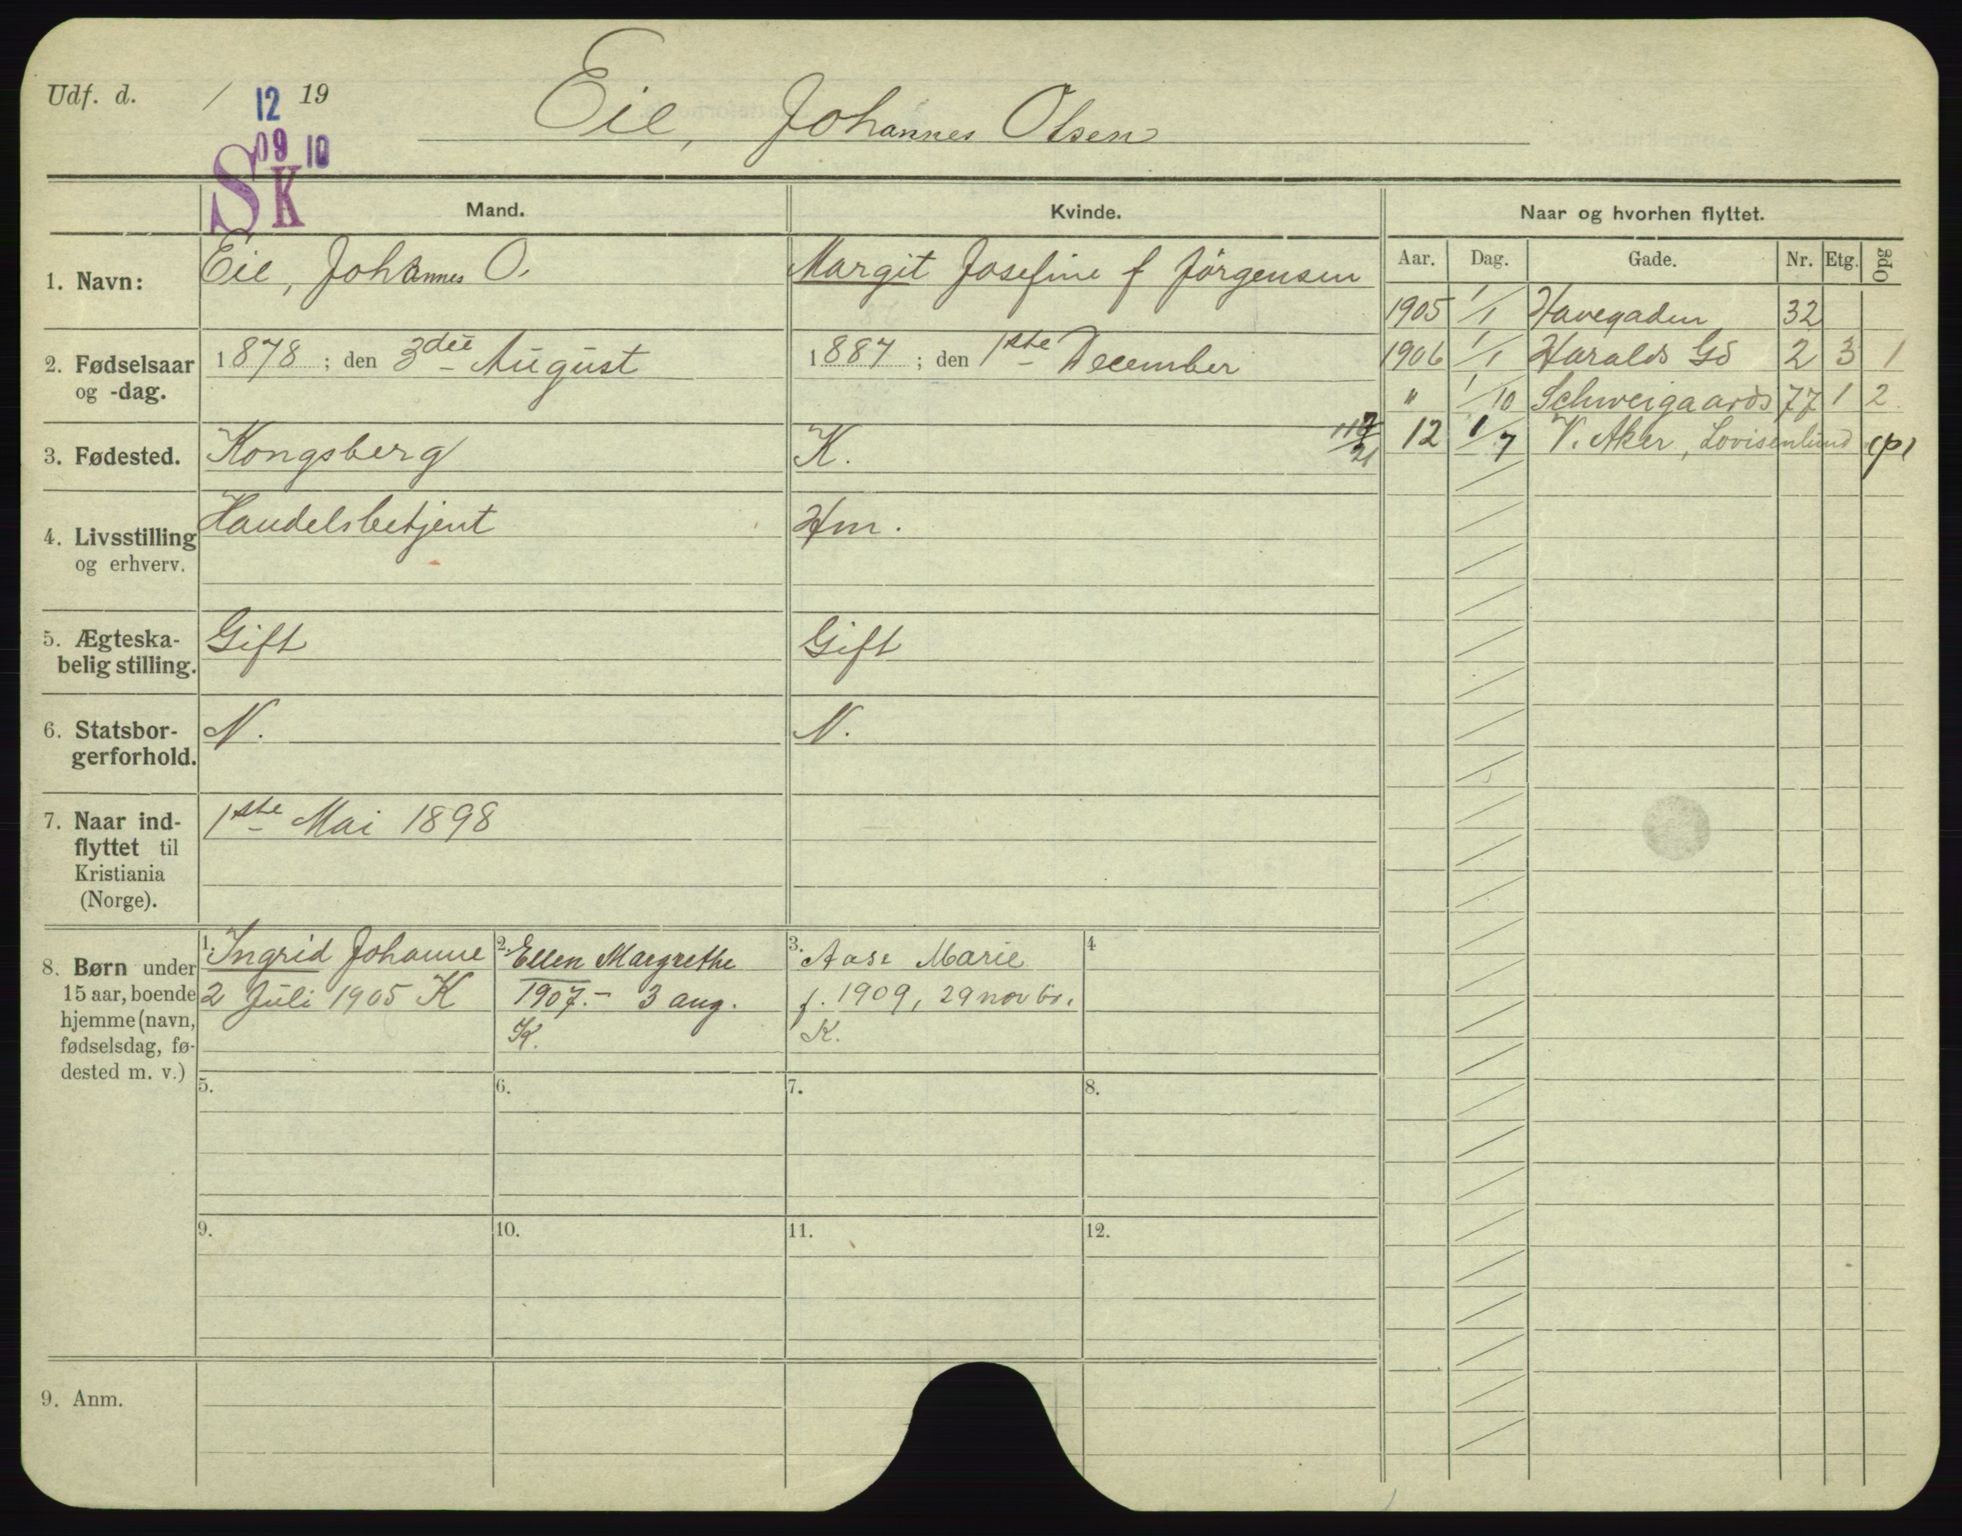 Udf. d. / 19
12
09 10
SK
Eie, Johannes Olsen
Mand.
Kvinde.
Naar og hvorhen flyttet.
1. Navn:
Eie, Johannes O.
Margit Josefine f Jörgensen
Aar. Dag. Gade. Nr. Etg. Opg
1905 1/1 Havegaden 32
1906 1/1 Haralds Gd 2 3 1
" 1/10 Schweigaards 77 1 2
12 1/7 V. Aker, Lovisenlund (p)
2. Fødselsaar
og -dag.
1878 ; den 3die August
1887 ; den 1ste December
3. Fødested.
Kongsberg
K.
4. Livsstilling
og erhverv.
Handelsbetjent
Hm.
5. Ægteska-
belig stilling.
Gift
Gift
6. Statsbor-
gerforhold.
N.
N.
7. Naar ind-
flyttet til
Kristiania
(Norge).
1ste Mai 1898
8. Børn under
15 aar, boende
hjemme (navn,
fødselsdag, fø-
dested m. v.)
1. Ingrid Johanne
2 Juli 1905 K
2. Ellen Margrethe
1907.- 3 aug.
K.
3. Aase Marie
f. 1909, 29 novbr.
K.
4
5.
6.
7.
8.
9.
10.
11.
12.
9. Anm.